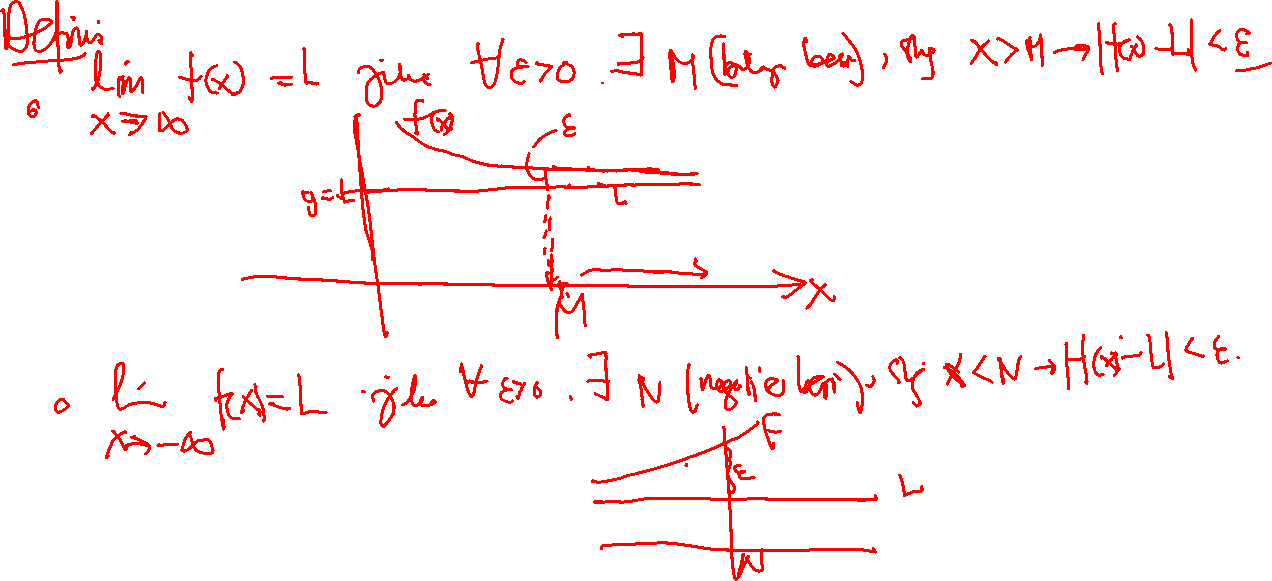 Definisi
lim f(x) = L jika ∀ε>0. ∃ M (bilg besar), shg x>M → |f(x)-L| < ε
x→∞
f(x)
ε
y=L
L
M
x
lim f(x)=L jika ∀ε>0. ∃ N (negatif besar), shg x<N → |f(x)-L| < ε.
x→-∞
F
ε
L
N